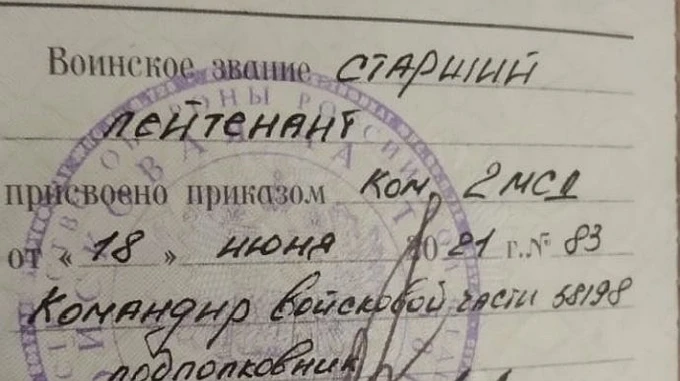 Воинское звание СТАРШИЙ
ЛЕЙТЕНАНТ
присвоено приказом Ком. 2 МСД
от « 18 » июня 2021 г. № 83
Командир войсковой части 58198
подполковник